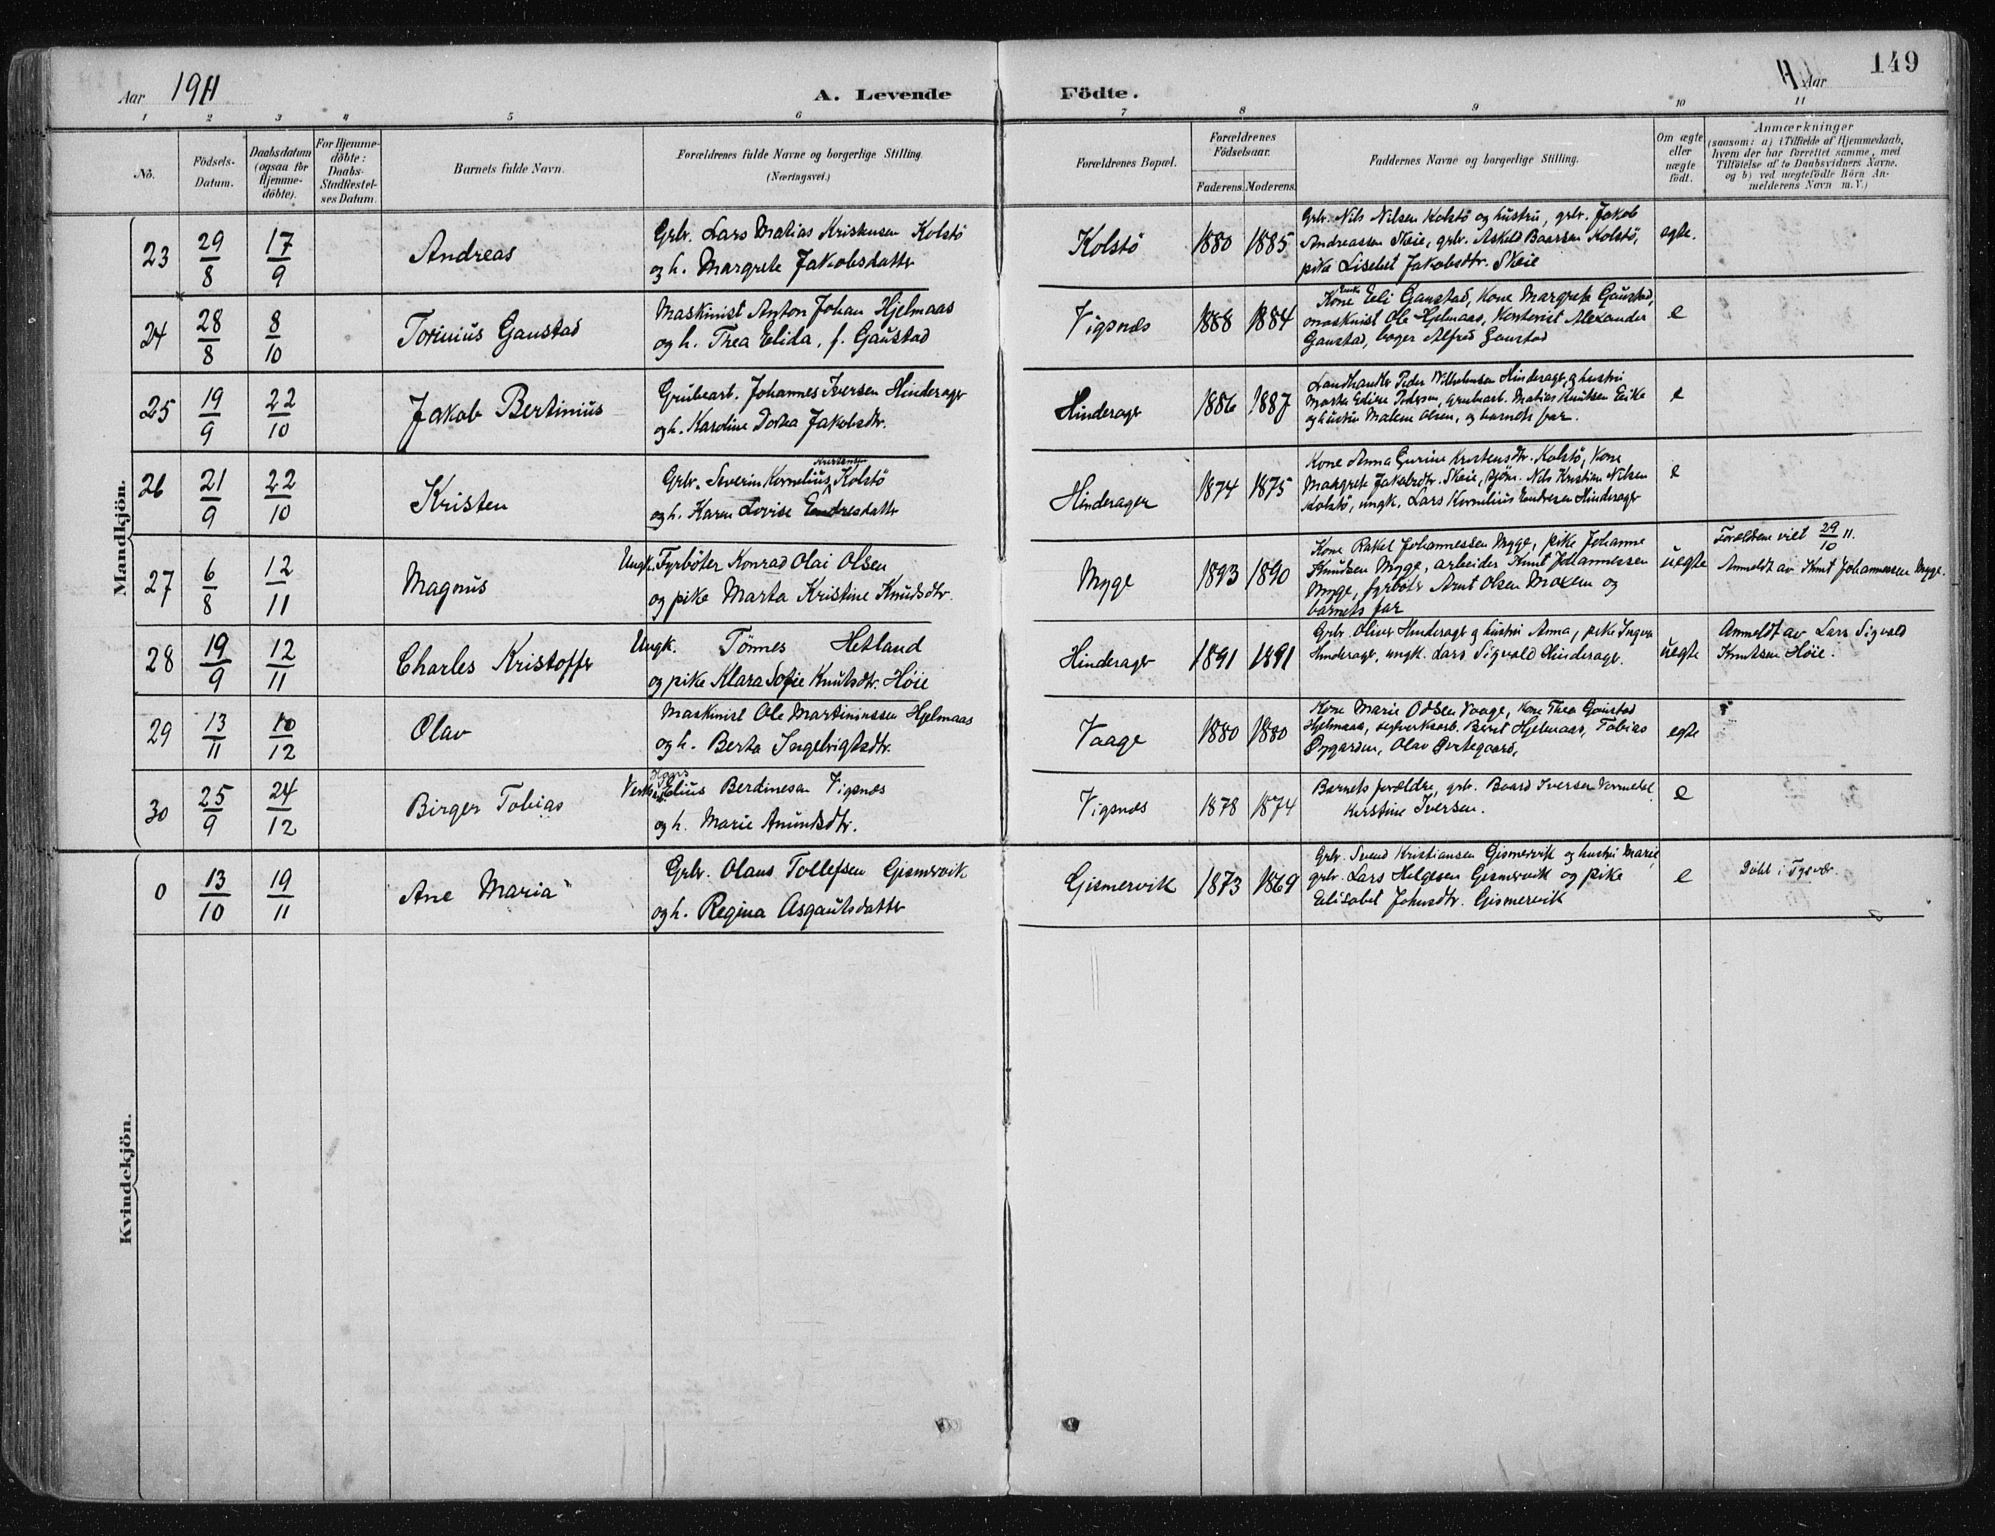 Aar 1911
A. Levende
Födte.
11 Aar
149
1 2 3 4 5 6 7 8 9 10 11
No.
Födsels-
Datum.
Daabsdatum
(ogsaa for
Hjemme-
döbte).
For Hjemme-
döbte:
Daabs-
Stadfæstel-
ses Datum.
Barnets fulde Navn.
Forældrenes fulde Navne og borgerlige Stilling.
(Næringsvei.)
Forældrenes Bopæl.
Forældrenes
Födselsaar.
Faderens. Moderens.
Faddernes Navne og borgerlige Stilling.
Om ægte
eller
uægte
født.
Anmærkninger
(saasom: a) i Tilfælde af Hjemmedaab,
hvem der har forrettet samme, med
Tilföielse af to Daabsvidners Navne,
og b) ved uægtefödte Börn An-
melderens Navn m. V.)
Mandkjön.
23 29/8 17/9 Andreas
Grbr. Lars Matias Kristensen Kolstö
og h. Margrete Jakobsdatter
Kolstö 1880 1885
Grbr. Nils Nilsen Kolstö og hustru, grbr. Jakob
Andreassen Skeie, grbr. Askild Baarsen Kolstö,
pike Lisebet Jakobsdtr. Skeie
egte.
24 28/8 8/10 Torinius Gaustad
Maskinist Anton Johan Hjelmaas
og h. Thea Elida, f. Gaustad
Vigsnes 1888 1884
Kone Eli Gaustad, Kone Margrete Gaustad,
maskinist Ole Hjelmaas, Kontorist Alexander
Gaustad, bager Alfred Gaustad
e
25 19/9 22/10 Jakob Bertinius
Grubearb. Johannes Iversen Hinderager
og h. Karoline Dortea Jakobsdtr.
Hinderager 1886 1887
Landhandler Peder Wilhelmsen Hinderager, g hustru
Marta Edine Pedersen, grubearb. Matias Knutsen Eike
og hustru Malene Olsen, og barnets far.
e
26 21/9 22/10 Kristen
Grbr. Severin Kornelius Kristensen Kolstö
og h. Karen Lovise Endresdatter
Hinderager 1874 1875
Kone Anna Gurine Kristensdtr. Kolstö, Kone
Margrete Jakobsdtr. Skeie, Nils Kristian Nilsen
Kolstö, ungk. Lars Kornelius Endresen Hinderager
e
27 6/8 12/11 Magnus
Ungk. Fyrböter Konrad Olai Olsen
og pike Marta Kristine Knudsdtr.
Myge 1893 1890
Kone Rakel Johannessen Myge, pike Johanne
Knudsen Myge, arbeider Knut Johannessen
Myge, fyrböter Arnt Olsen Moxem og
barnets far
uegte
Forældrene viet 29/10 11.
Anmeldt av Knut Johannessen Myge.
28 19/9 12/11 Charles Kristoffer
Ungk. Tönnes Hetland
og pike Klara Sofie Knutsdtr. Höie
Hinderager 1891 1891
Grbr Oliver Hinderager g hustru Anna, pike Inger
Hinderager, ungk. Lars Sigvald Hinderager.
uegte
Anmeldt av Lars Sigvald
Knutsen Höie.
29 13/11 10/12 Olav
Maskinist Ole Martininssen Hjelmaas
og h. Berta Ingebrigtsdtr.
Vaage 1880 1880
Kone Marie Odsen Vaage, Kone Thea Gaustad
Hjelmaas, Berit Hjelmaas, Tobias
Olav
egte
30 25/9 24/12 Birger Tobias
Elius Berdinesen Vigsnes
og h. Marie Amundsdtr.
Vigsnes 1878 1874
Barnets forældre, grbr. Baard Iversen
Kerstine Iversen.
e
Kvindekjön.
0 13/10 19/11 Ane Maria
Grbr. Olaus Tollefsen Gismervik
og h. Regina Asgautsdatter
Gismervik 1873 1869
Grbr. Svend Kristiansen Gismervik og hustru Marie,
grbr. Lars Helgesen Gismervik og pike
Elisabet Johnsdtr. Gismervik
e
Döbt i Tysvær.